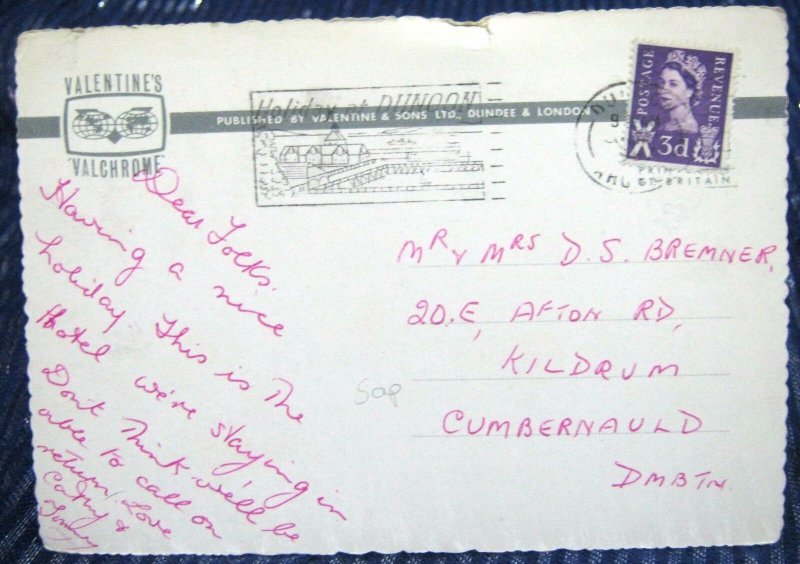 VALENTINE'S
"VALCHROME"
Holiday at DUNOON
PUBLISHED BY VALENTINE & SONS LTD., DUNDEE & LONDON
POSTAGE
REVENUE
3d
GT. BRITAIN
Dear Folks.
Having a nice
holiday. This is the
Hotel we're staying in
Don't think we'll be
able to call on
return, Love
Cathy &
Tommy
MR & MRS D.S. BREMNER,
20.E, AFTON RD,
KILDRUM
CUMBERNAULD
DMBTN.
50p